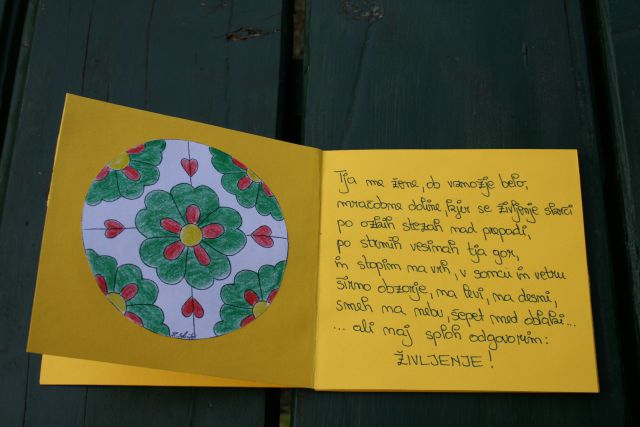 Tja me žene, ob vznožje belo,
doline, kjer se življenje
po ozkih stezah nad prepadi,
po strmih vesinah tja gor,
in stopim na vrh, v soncu in vetru
širno obzorje, na levi, na desni,
smeh na nebu, šepet med oblaki...
... ali naj sploh odgovorim:
ŽIVLJENJE!